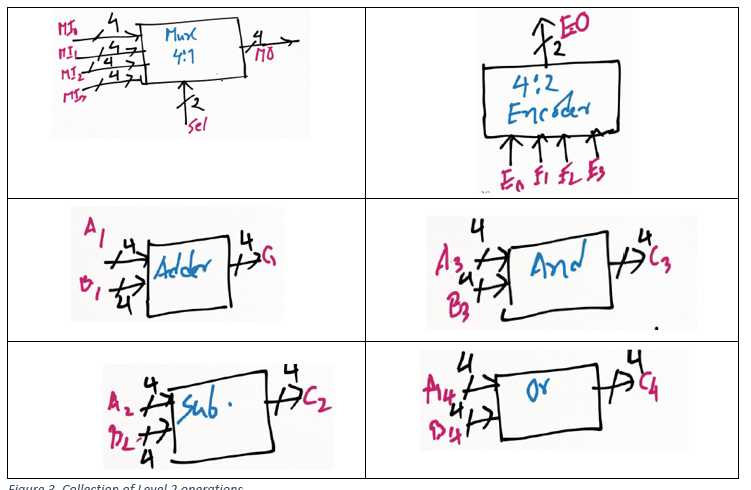 MI0 4
MI1 4
MI2 4
MI3 4
Mux
4:1
4
MO
2
Sel
EO
2
4:2
Encoder
E0 E1 E2 E3
A1 4
B1 4
Adder
4 C1
A3 4
B3 4
And
4 C3
A2 4
B2 4
Sub.
4 C2
A4 4
B4 4
Or
4 C4
Figure 3. Collection of Level 2 operations